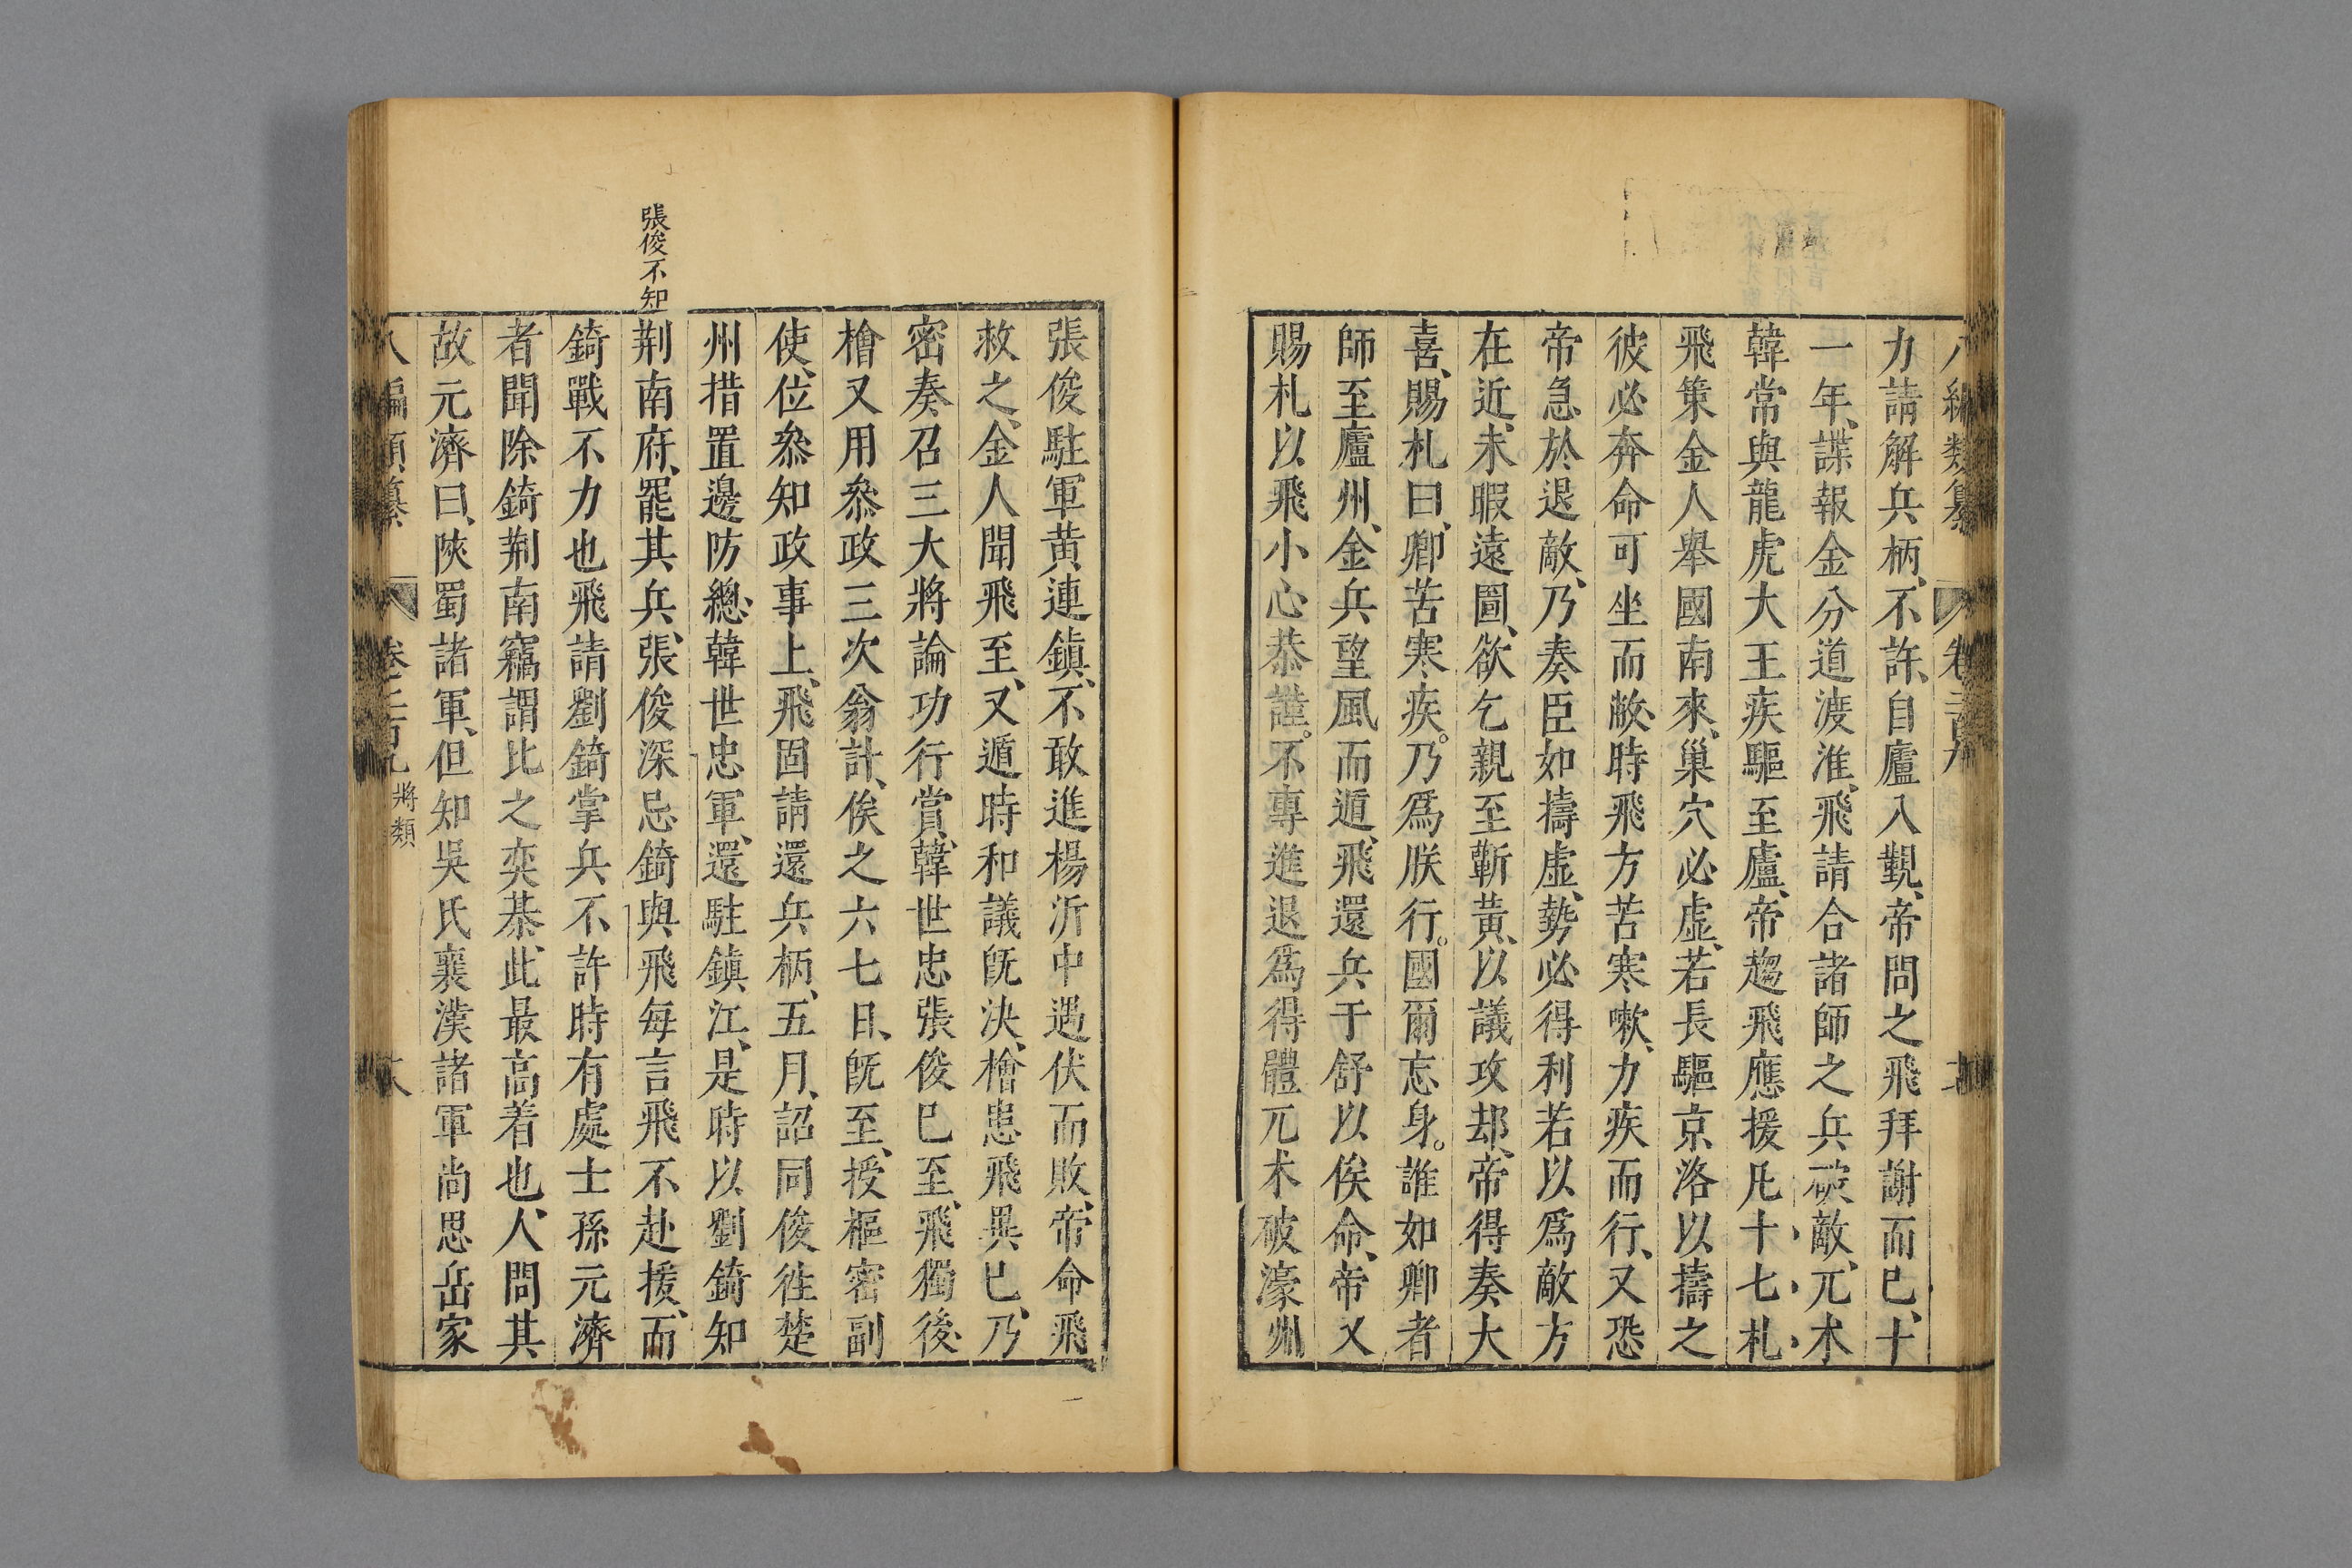 力請解兵柄、不許、自廬入覲、帝問之飛拜謝而已、十
一年、諜報金分道渡淮、飛請合諸師之兵破敵、兀术
韓常與龍虎大王疾驅至廬、帝趣飛應援凡十七札、
飛策金人舉國南來、巢穴必虛、若長驅京洛以擣之
彼必奔命可坐而敝、時飛方苦寒嗽、力疾而行、又恐
帝急於退敵、乃奏臣如擣虛、勢必得利若以爲敵方
在近、未暇遠圖、欲乞親至蘄黃、以議攻却、帝得奏大
喜、賜札曰、卿苦寒疾。乃爲朕行。國爾忘身。誰如卿者
師至廬州、金兵望風而遁、飛還兵于舒以俟命、帝又
賜札以飛小心恭謹。不專進退爲得體兀术破濠州
張俊駐軍黃連鎮、不敢進楊沂中遇伏而敗、帝命飛
救之、金人聞飛至、又遁時和議旣決、檜患飛異已、乃
密奏召三大將論功行賞、韓世忠張俊巳至、飛獨後、
檜又用叅政三次翁計、俟之六七日、旣至、授樞密副
使、位叅知政事上、飛固請還兵柄、五月、詔同俊徃楚
州措置邊防總、韓世忠軍、還駐鎮江、是時以劉錡知
張俊不知
荆南府、罷其兵、張俊深忌錡與飛每言飛不赴援、而
錡戰不力也飛請劉錡掌兵不許時有處士孫元濟
者聞除錡荆南竊謂比之奕棊、此最高着也、人問其
故元濟曰、陜蜀諸軍、但知吳氏襄漢諸軍尚思岳家
八編類纂
將類